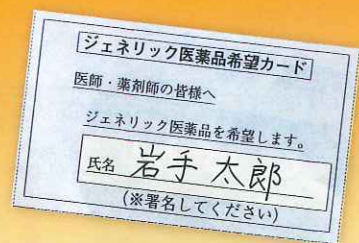 ジェネリック医薬品希望カード
医師・薬剤師の皆様へ
ジェネリック医薬品を希望します。
氏名 岩手太郎
(※署名してください)